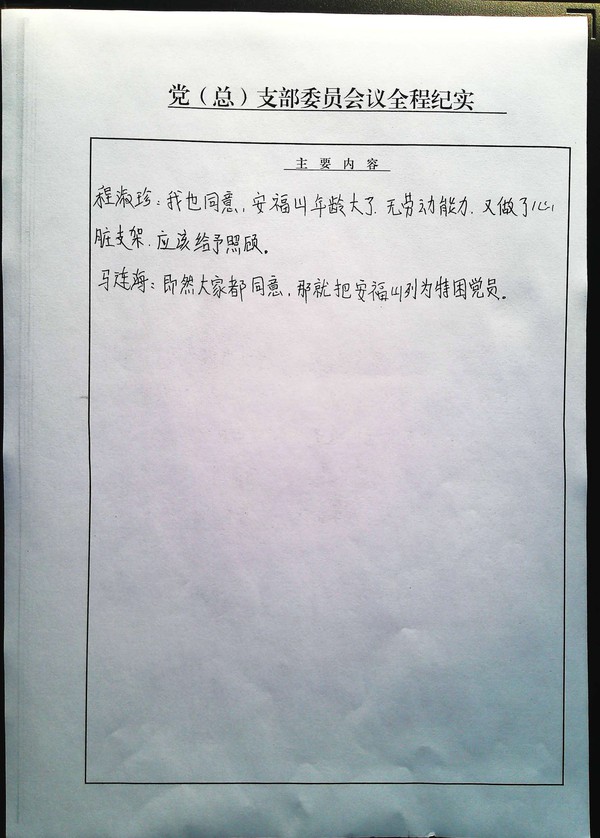 党（总）支部委员会议全程纪实
主要内容
程淑珍：我也同意，安福山年龄大了.无劳动能力.又做了心
脏支架.应该给予照顾。
马连海：即然大家都同意，那就把安福山列为特困党员。